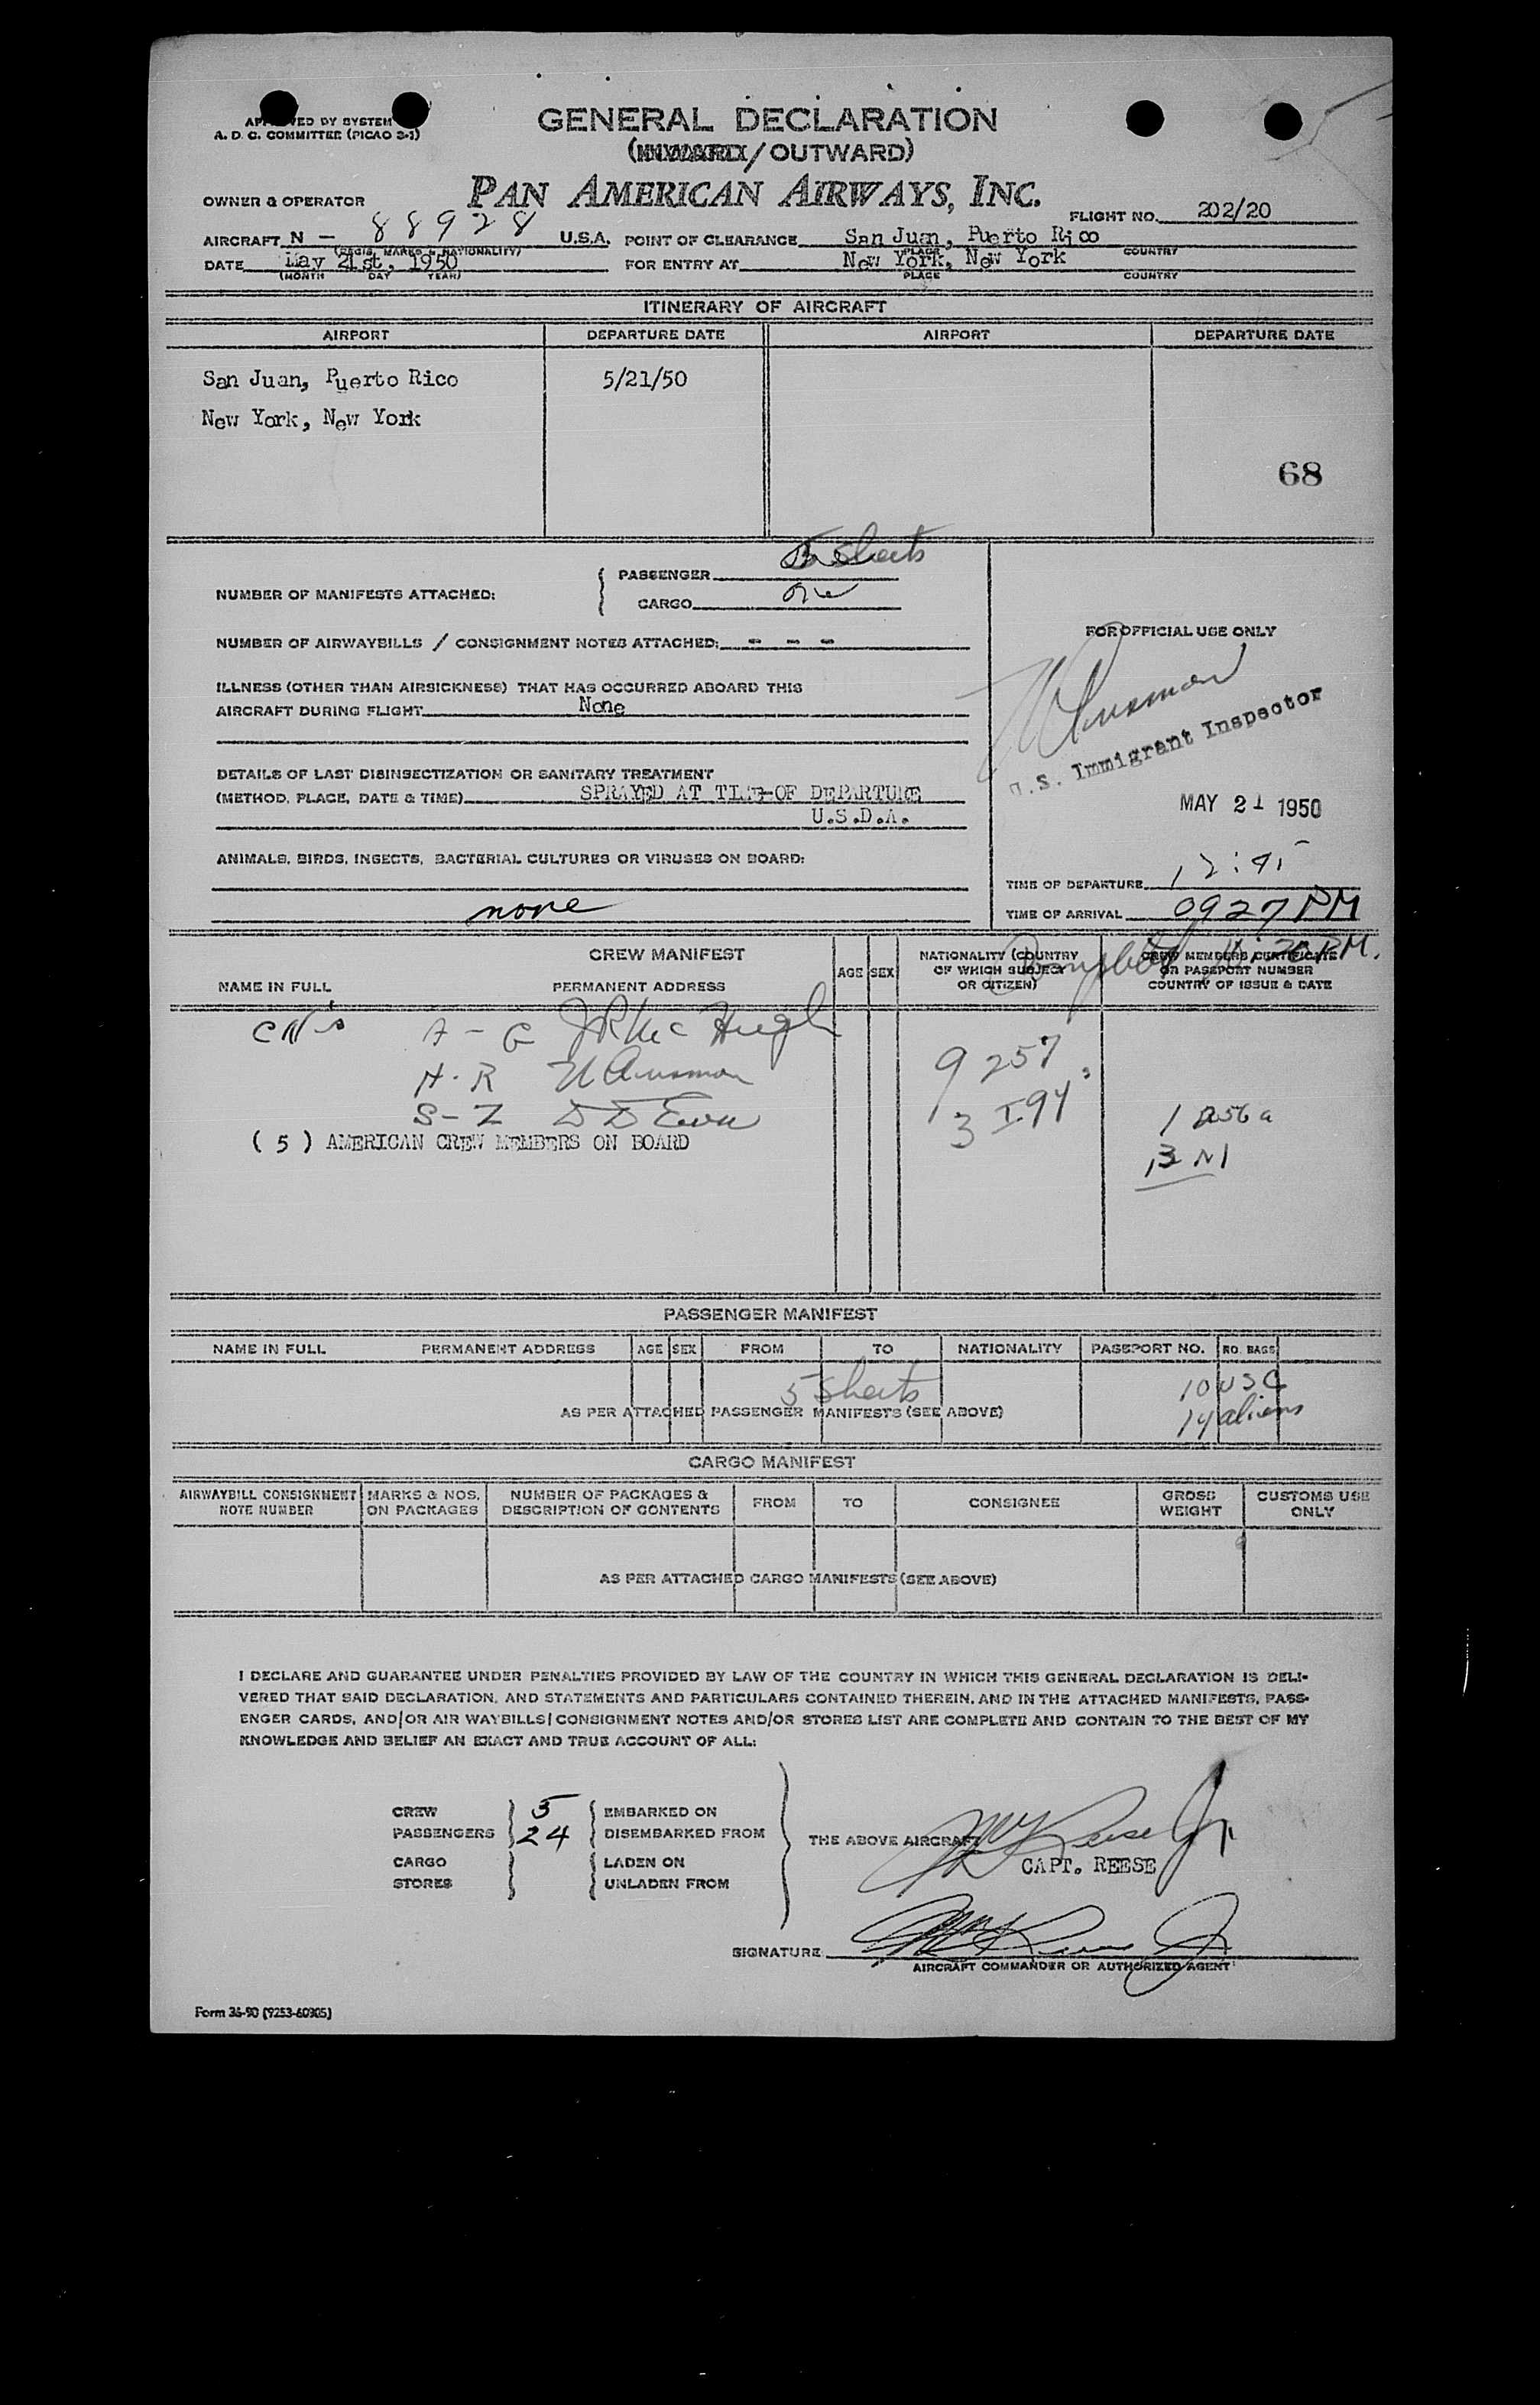 GENERAL DECLARATION
A. D. C. COMMITTEE (PICAO 3-1)
/ OUTWARD)
PAN AMERICAN AIRWAYS, INC.
OWNER & OPERATOR
FLIGHT NO. 202/20
AIRCRAFT N - 88928 U.S.A. POINT OF CLEARANCE San Juan, Puerto Rico
(REGIS. MARKS & NATIONALITY) PLACE COUNTRY
DATE May 21st, 1950 FOR ENTRY AT New York, New York
(MONTH DAY YEAR) PLACE COUNTRY
ITINERARY OF AIRCRAFT
AIRPORT DEPARTURE DATE AIRPORT DEPARTURE DATE
San Juan, Puerto Rico 5/21/50
New York, New York
68
NUMBER OF MANIFESTS ATTACHED: { PASSENGER 5 Sheets
CARGO one
NUMBER OF AIRWAYBILLS / CONSIGNMENT NOTES ATTACHED: - - -
FOR OFFICIAL USE ONLY
ILLNESS (OTHER THAN AIRSICKNESS) THAT HAS OCCURRED ABOARD THIS
AIRCRAFT DURING FLIGHT None
U.S. Immigrant Inspector
DETAILS OF LAST DISINSECTIZATION OR SANITARY TREATMENT
(METHOD, PLACE, DATE & TIME) SPRAYED AT TIME OF DEPARTURE
U.S.D.A.
MAY 21 1950
ANIMALS, BIRDS, INSECTS, BACTERIAL CULTURES OR VIRUSES ON BOARD:
none
TIME OF DEPARTURE 12:45
TIME OF ARRIVAL 0927 PM
CREW MANIFEST
NAME IN FULL PERMANENT ADDRESS AGE SEX NATIONALITY (COUNTRY OF WHICH SUBJECT OR CITIZEN) CREW MEMBERS CERTIFICATE OR PASSPORT NUMBER COUNTRY OF ISSUE & DATE
A - G J R McHugh
H - R
S - Z
9 257
( 5 ) AMERICAN CREW MEMBERS ON BOARD
PASSENGER MANIFEST
NAME IN FULL PERMANENT ADDRESS AGE SEX FROM TO NATIONALITY PASSPORT NO. NO. BAGS
5 Sheets 10 USC
AS PER ATTACHED PASSENGER MANIFESTS (SEE ABOVE) 14 aliens
CARGO MANIFEST
AIRWAYBILL CONSIGNMENT NOTE NUMBER MARKS & NOS. ON PACKAGES NUMBER OF PACKAGES & DESCRIPTION OF CONTENTS FROM TO CONSIGNEE GROSS WEIGHT CUSTOMS USE ONLY
AS PER ATTACHED CARGO MANIFESTS (SEE ABOVE)
I DECLARE AND GUARANTEE UNDER PENALTIES PROVIDED BY LAW OF THE COUNTRY IN WHICH THIS GENERAL DECLARATION IS DELI-
VERED THAT SAID DECLARATION, AND STATEMENTS AND PARTICULARS CONTAINED THEREIN, AND IN THE ATTACHED MANIFESTS, PASS-
ENGER CARDS, AND/OR AIR WAYBILLS/CONSIGNMENT NOTES AND/OR STORES LIST ARE COMPLETE AND CONTAIN TO THE BEST OF MY
KNOWLEDGE AND BELIEF AN EXACT AND TRUE ACCOUNT OF ALL:
CREW 5 EMBARKED ON
PASSENGERS 24 DISEMBARKED FROM
THE ABOVE AIRCRAFT
CARGO LADEN ON
CAPT. REESE
STORES UNLADEN FROM
SIGNATURE
AIRCRAFT COMMANDER OR AUTHORIZED AGENT
Form 36-90 (9253-60305)